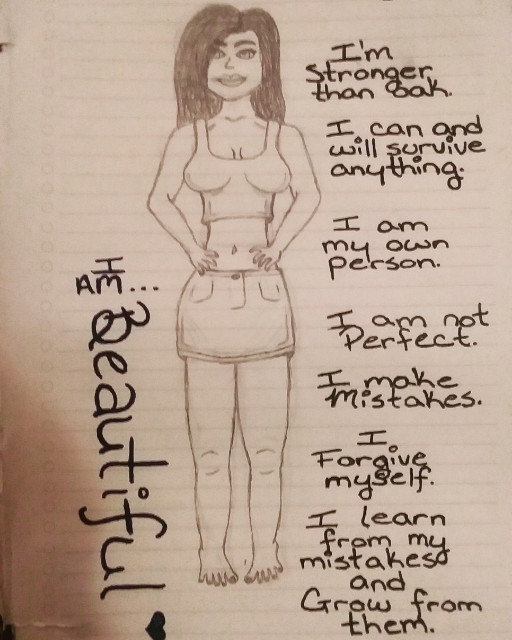 I'm
Stronger
than Oak.
I can and
will survive
anything.
I am
my own
person.
I am not
Perfect.
I make
Mistakes.
I
Forgive
myself.
I learn
from my
mistakes
and
Grow from
them.
I
AM...
Beautiful